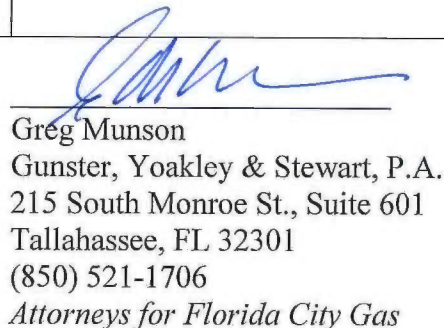 Greg Munson
Gunster, Yoakley & Stewart, P.A.
215 South Monroe St., Suite 601
Tallahassee, FL 32301
(850) 521-1706
Attorneys for Florida City Gas